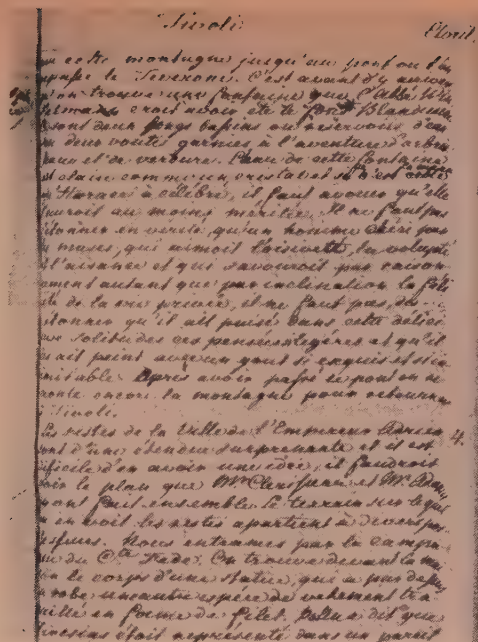 Tivoli
de cette montagne jusqu'au pont ou l'on
passe le Teverone. C'est avant d'y arriver
qu'on trouve une fontaine que l'abbé
croit avoir été le fons Blandusia
sont deux longs bassins ou reservoirs d'eau
deux voutes garnies à l'aventure d'arbris
et de verdure. L'eau de cette fontaine
est claire comme un cristal et si c'est celle
qu'Horace a célébré, il faut avouer qu'elle
auroit au moins merité. Il ne faut pas
s'étonner en verité qu'un homme chéri par
les muses, qui aimoit l'oisiveté, la volupté
et l'aisance et qui savouroit par raison
nement autant que par inclination la féli
cité de la vie privée, il ne faut pas, dis-
étonner qu'il ait puisé dans cette délici
euse solitude ces pensers legères et qu'il
ait peint avec un gout si exquis et si
inimitable. Après avoir passé ce pont on re
monte encore la montagne pour retourner
à Tivoli.
Les restes de la Ville de l'Empereur Adrien 4.
sont d'une étendue surprenante et il est
dificile d'en avoir une idée, il faudroit
voir le plan que Mr Clerisseau et Mr
ont fait ensemble. Le terrain sur lequel
on en voit les restes apartient à divers pos
sesseurs. Nous entrames par la campa
gne du Cte Fede. On trouve devant la
le corps d'une statue, qui a par dessus
robe une autre espece de vetement tra
vaillé en forme de filet. a dit que
Tiresias étoit représenté dans un pareil